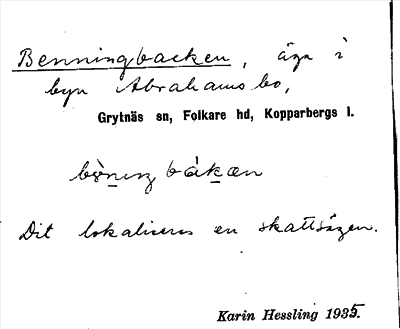 Benningbacken, äga i
byn Abrahamsbo,
Grytnäs sn, Folkare hd, Kopparbergs l.
Dit lokaliseras en skattsägen.
Karin Hessling 1935.